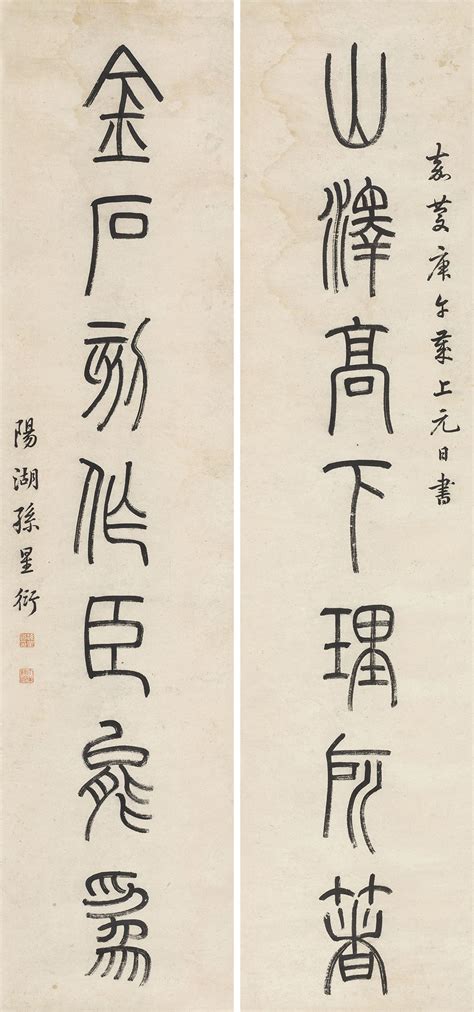 嘉慶庚午歲上元日書
山澤高下理所著
金石刻作臣能為
陽湖孫星衍